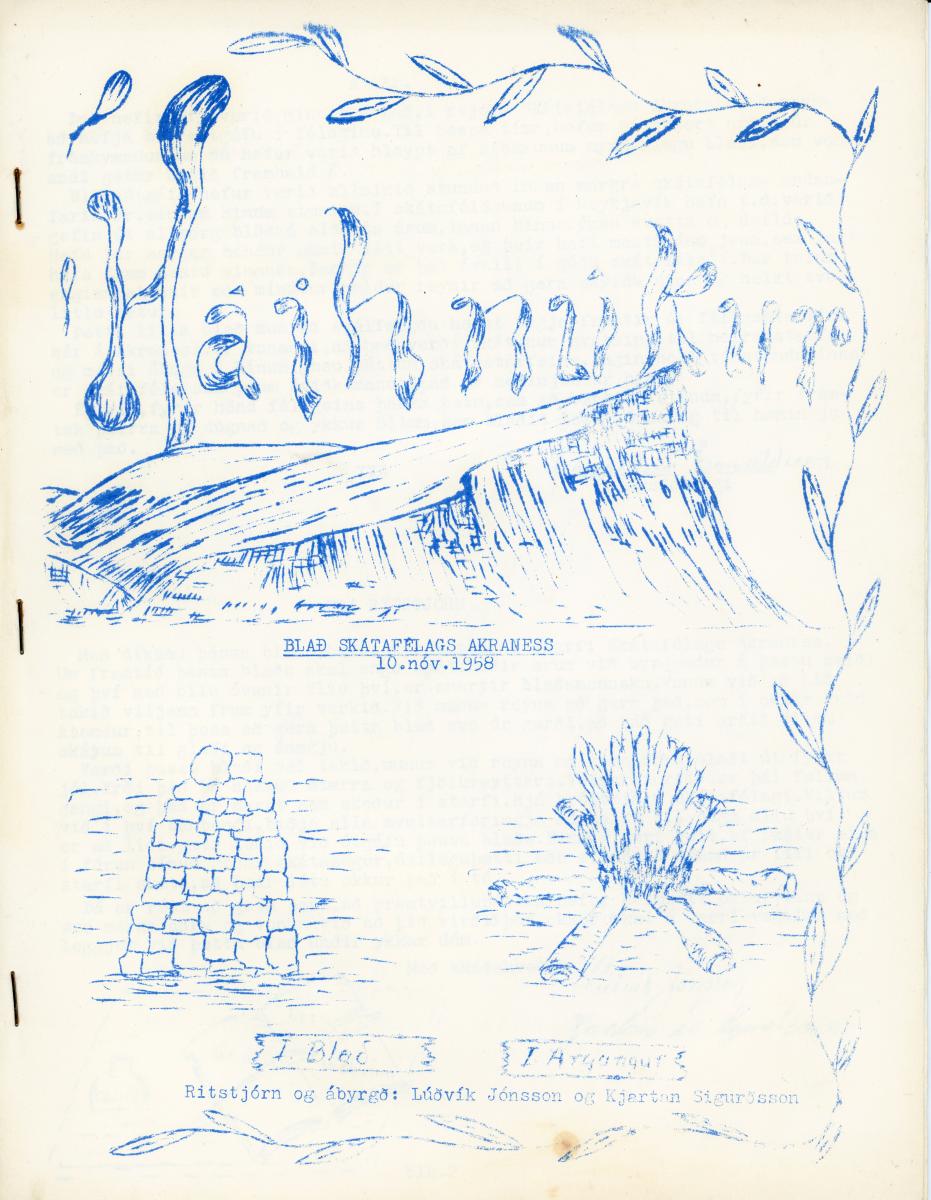 Háihnúkur
BLAÐ SKÁTAFÉLAGS AKRANESS
10.nóv.1958
I. Blað
I. Árgangur
Ritstjórn og ábyrgð: Lúðvík Jónsson og Kjartan Sigurðsson